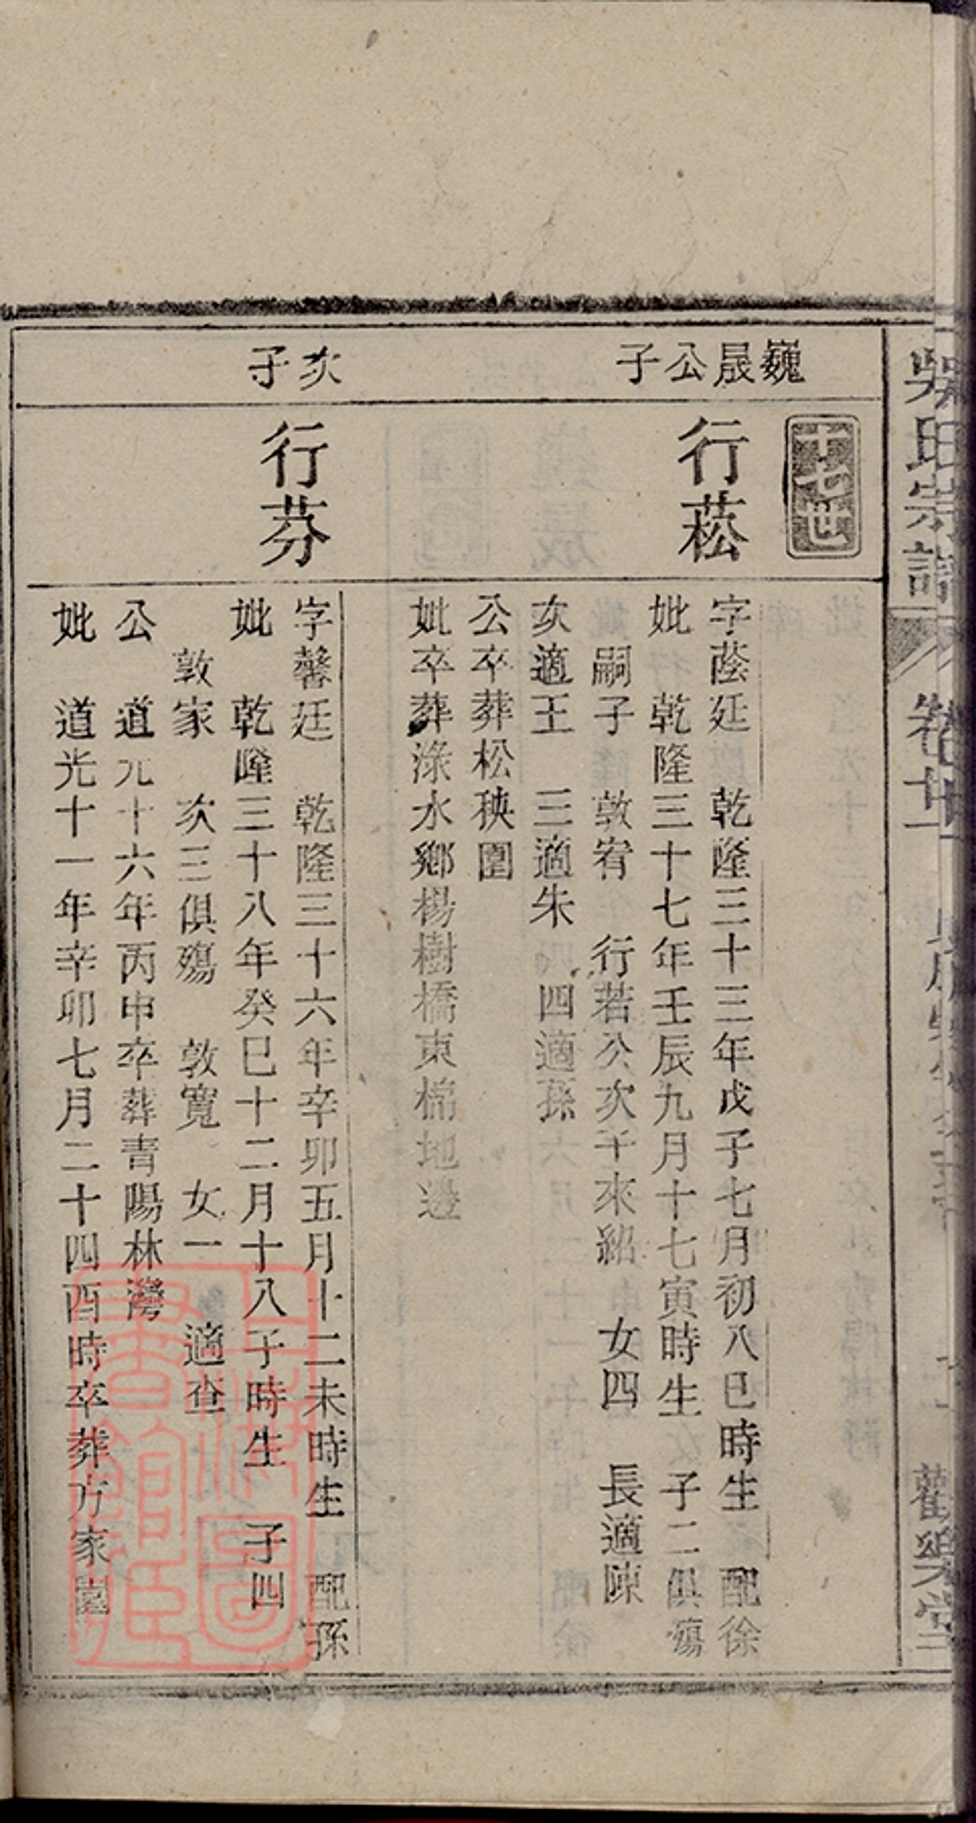 吳氏宗譜
卷廿一
觀樂堂
十七世
巍晟公子
行菘
字蔭廷　乾隆三十三年戊子七月初八巳時生　配徐
妣　乾隆三十七年壬辰九月十七寅時生　子二俱殤
嗣子　敦宥　行若公次子來紹　女四　長適陳
次適王　三適朱　四適孫
公卒葬松秧圍
妣卒葬淥水鄉楊樹橋東棉地邊
次子
行芬
字馨廷　乾隆三十六年辛卯五月十二未時生　配孫
妣　乾隆三十八年癸巳十二月十八子時生　子四
敦家　次三俱殤　敦寬　女一　適查
公　道光十六年丙申卒葬青陽林灣
妣　道光十一年辛卯七月二十四酉時卒葬方家園
上海圖書館藏